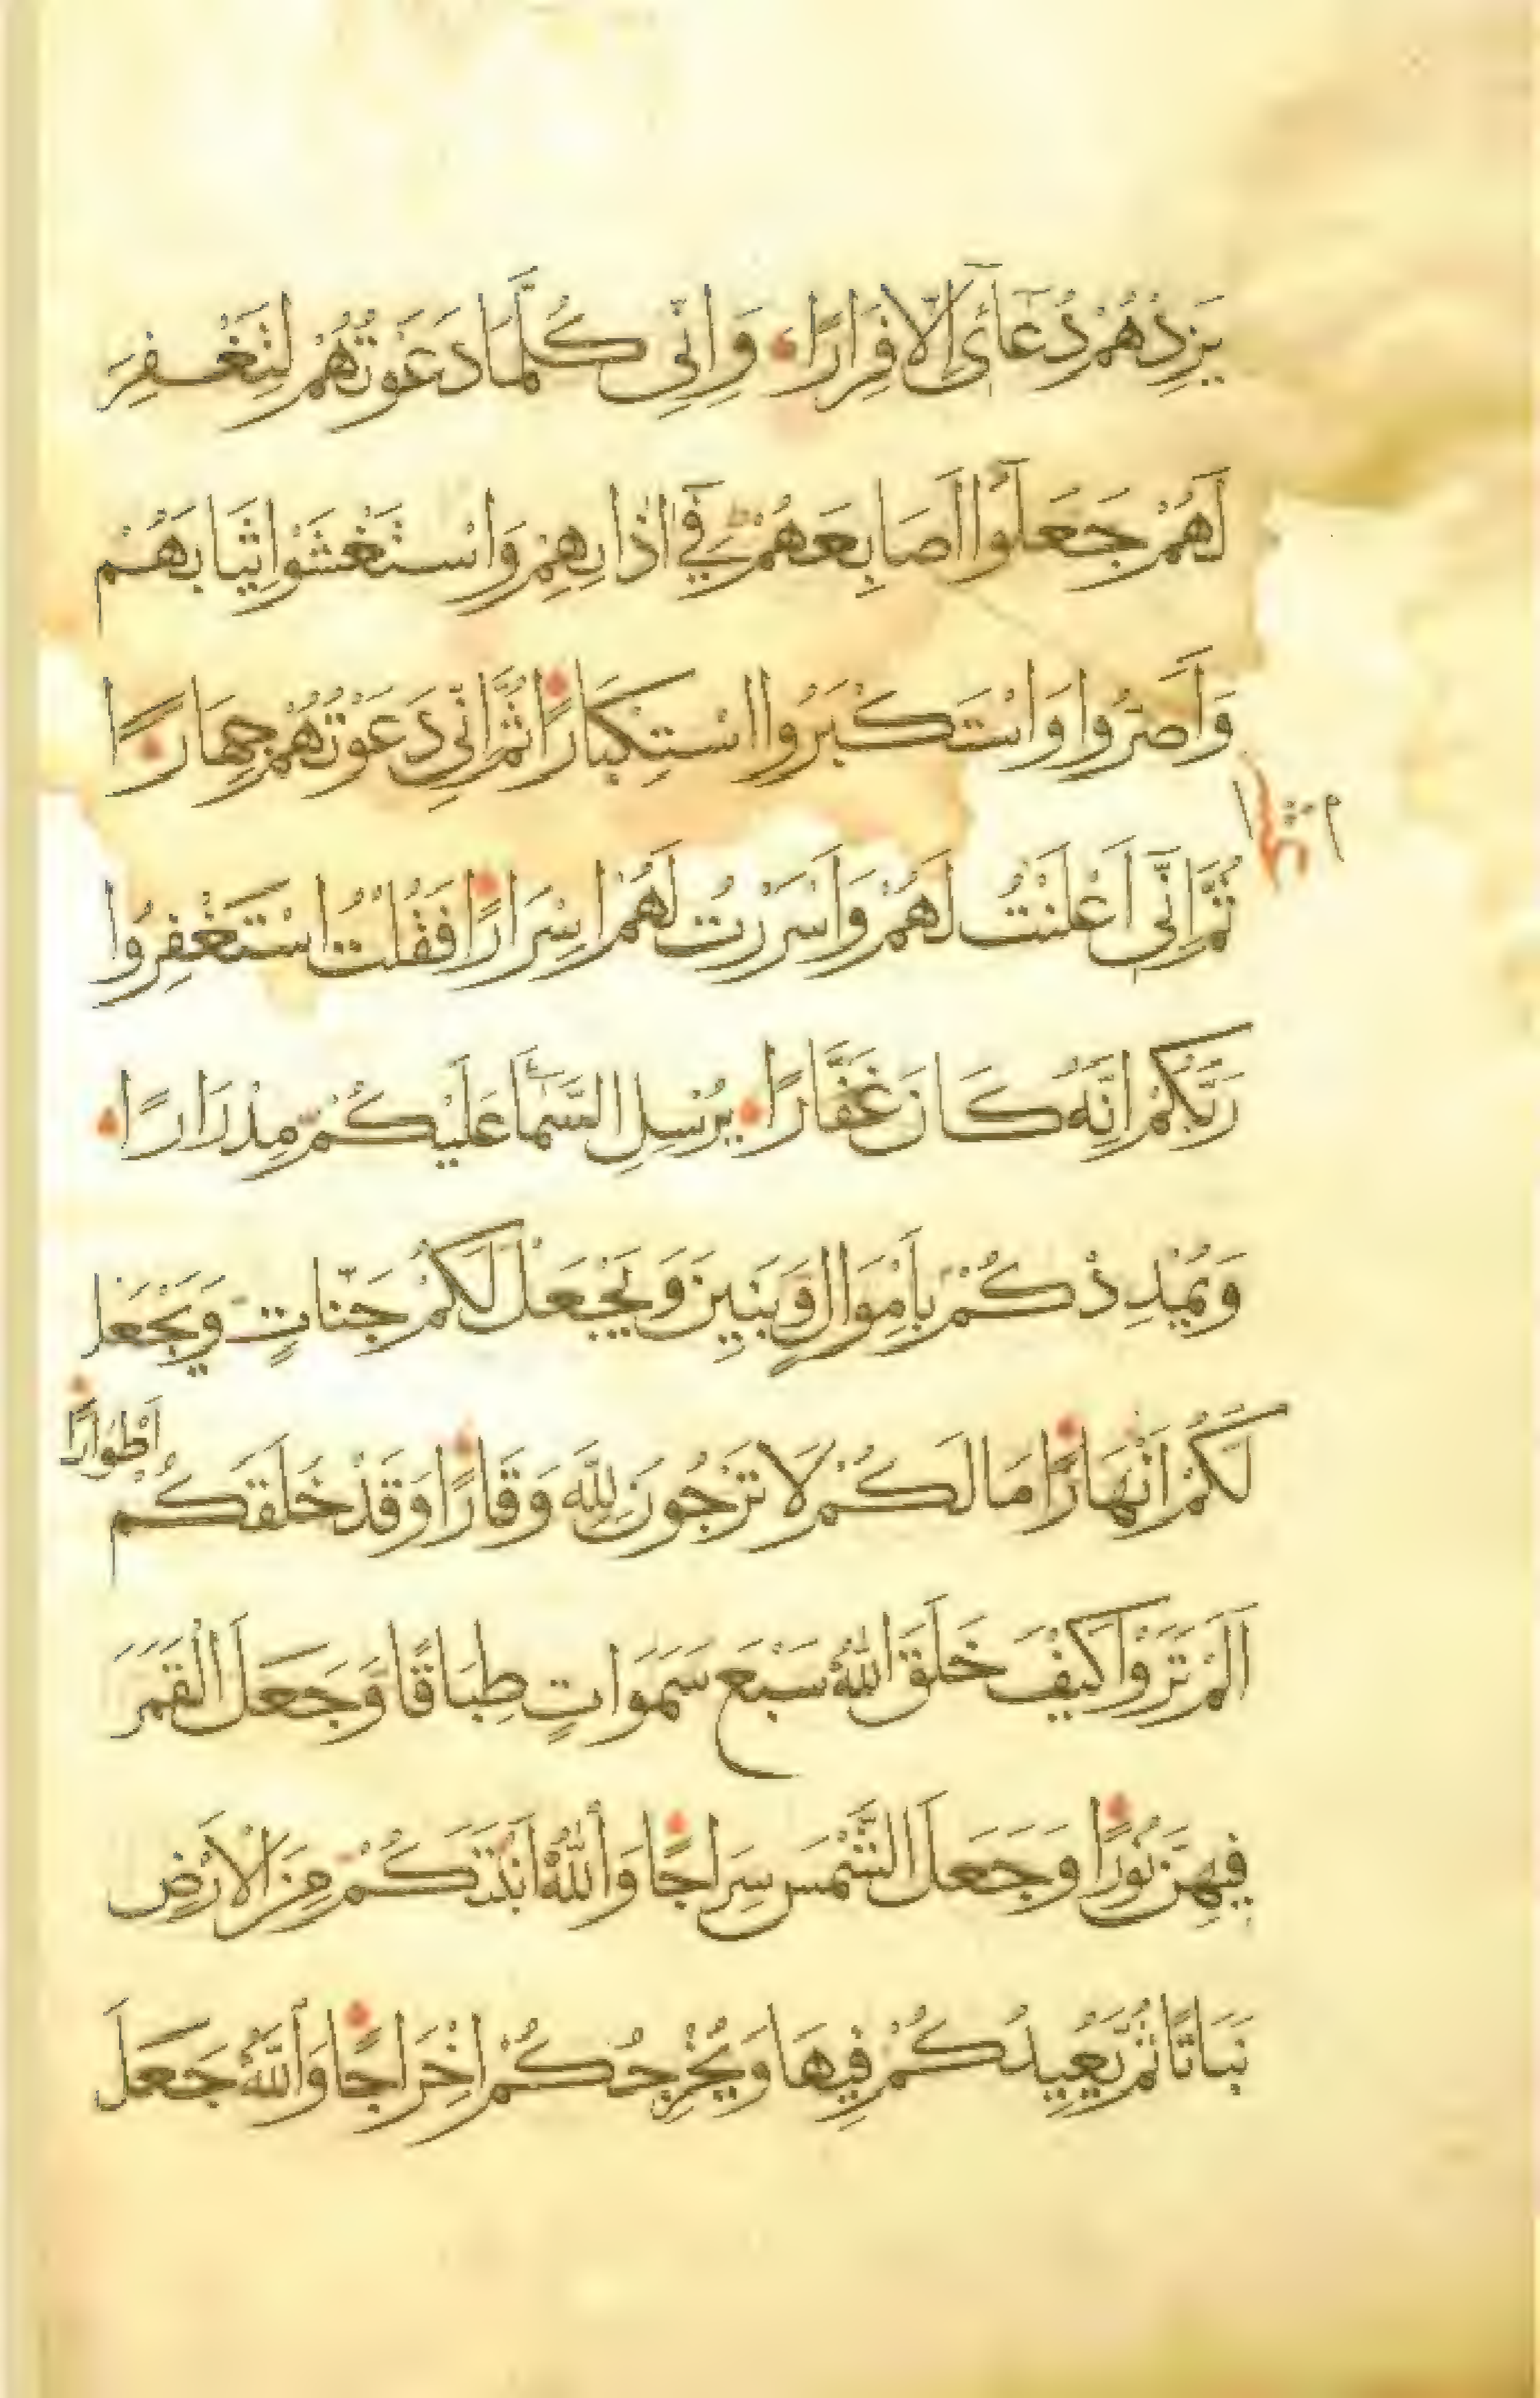 يَزِدْهُمْ دُعَائِى اِلَّا فِرَارًا وَاِنِّى كُلَّمَا دَعَوْتُهُمْ لِتَغْفِرَ
لَهُمْ جَعَلُوا اَصَابِعَهُمْ فِى اٰذَانِهِمْ وَاسْتَغْشَوْا ثِيَابَهُمْ
وَاَصَرُّوا وَاسْتَكْبَرُوا اسْتِكْبَارًا ثُمَّ اِنِّى دَعَوْتُهُمْ جِهَارًا
ثُمَّ اِنِّى اَعْلَنْتُ لَهُمْ وَاَسْرَرْتُ لَهُمْ اِسْرَارًا فَقُلْتُ اسْتَغْفِرُوا
رَبَّكُمْ اِنَّهُ كَانَ غَفَّارًا يُرْسِلِ السَّمَاءَ عَلَيْكُمْ مِدْرَارًا
وَيُمْدِدْكُمْ بِاَمْوَالٍ وَبَنِينَ وَيَجْعَلْ لَكُمْ جَنَّاتٍ وَيَجْعَلْ
لَكُمْ اَنْهَارًا مَا لَكُمْ لَا تَرْجُونَ لِلّٰهِ وَقَارًا وَقَدْ خَلَقَكُمْ اَطْوَارًا
اَلَمْ تَرَوْا كَيْفَ خَلَقَ اللّٰهُ سَبْعَ سَمَوَاتٍ طِبَاقًا وَجَعَلَ الْقَمَرَ
فِيهِنَّ نُورًا وَجَعَلَ الشَّمْسَ سِرَاجًا وَاللّٰهُ اَنْبَتَكُمْ مِنَ الْاَرْضِ
نَبَاتًا ثُمَّ يُعِيدُكُمْ فِيهَا وَيُخْرِجُكُمْ اِخْرَاجًا وَاللّٰهُ جَعَلَ